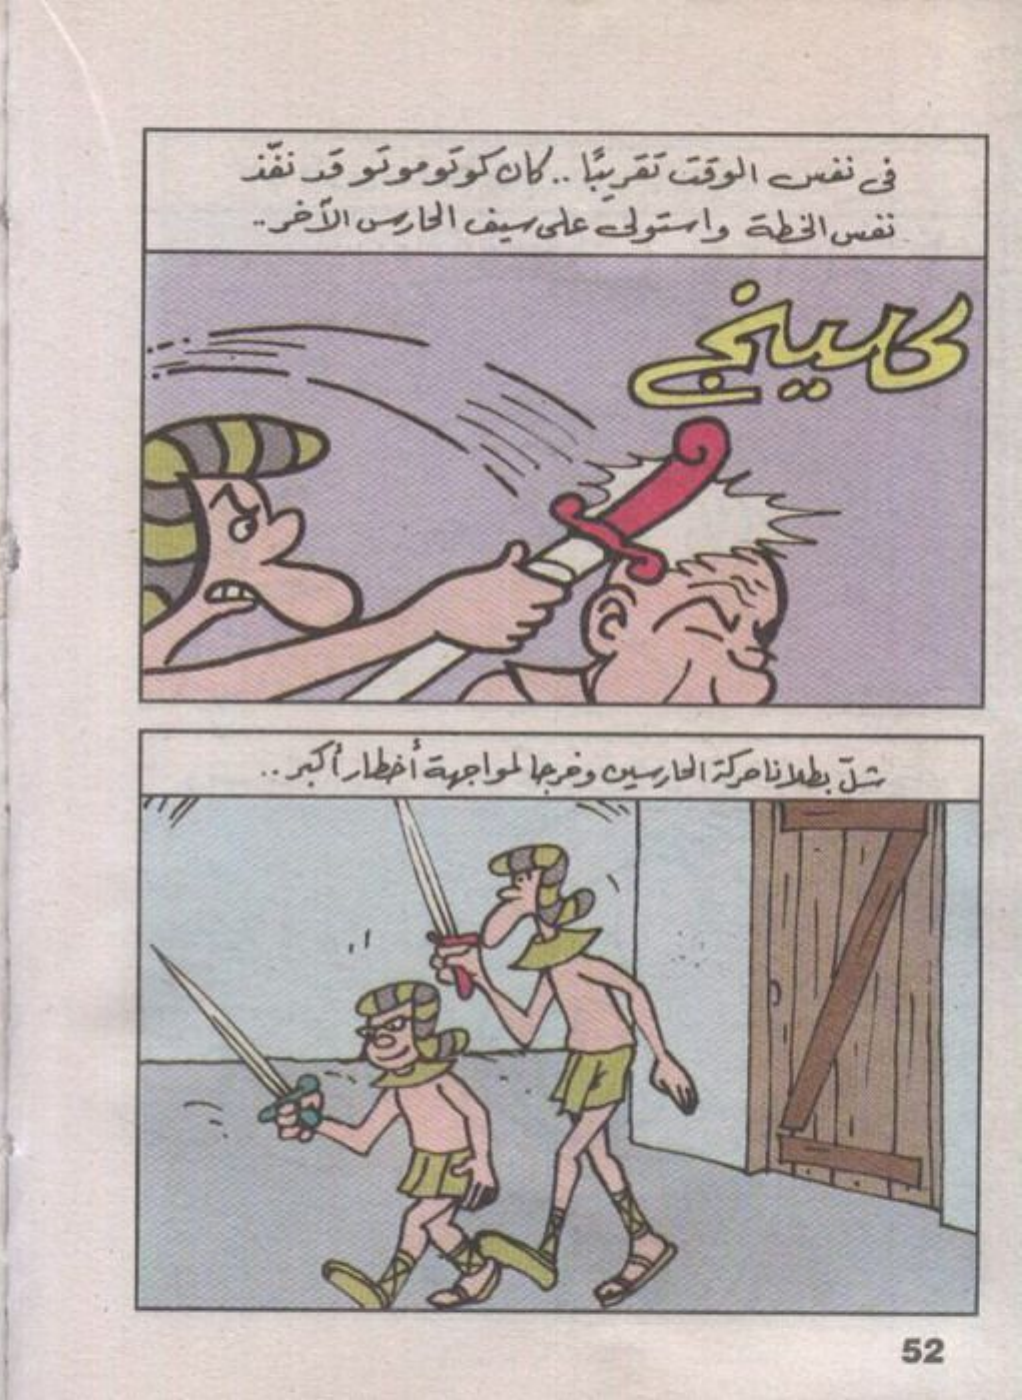 فى نفس الوقت تقريبًا .. كان كوتوموتو قد نفّذ
نفس الخطة واستولى على سيف الحارس الآخر..
كاسينج
شلّ بطلانا حركة الحارسين وخرجا لمواجهة أخطار أكبر..
52